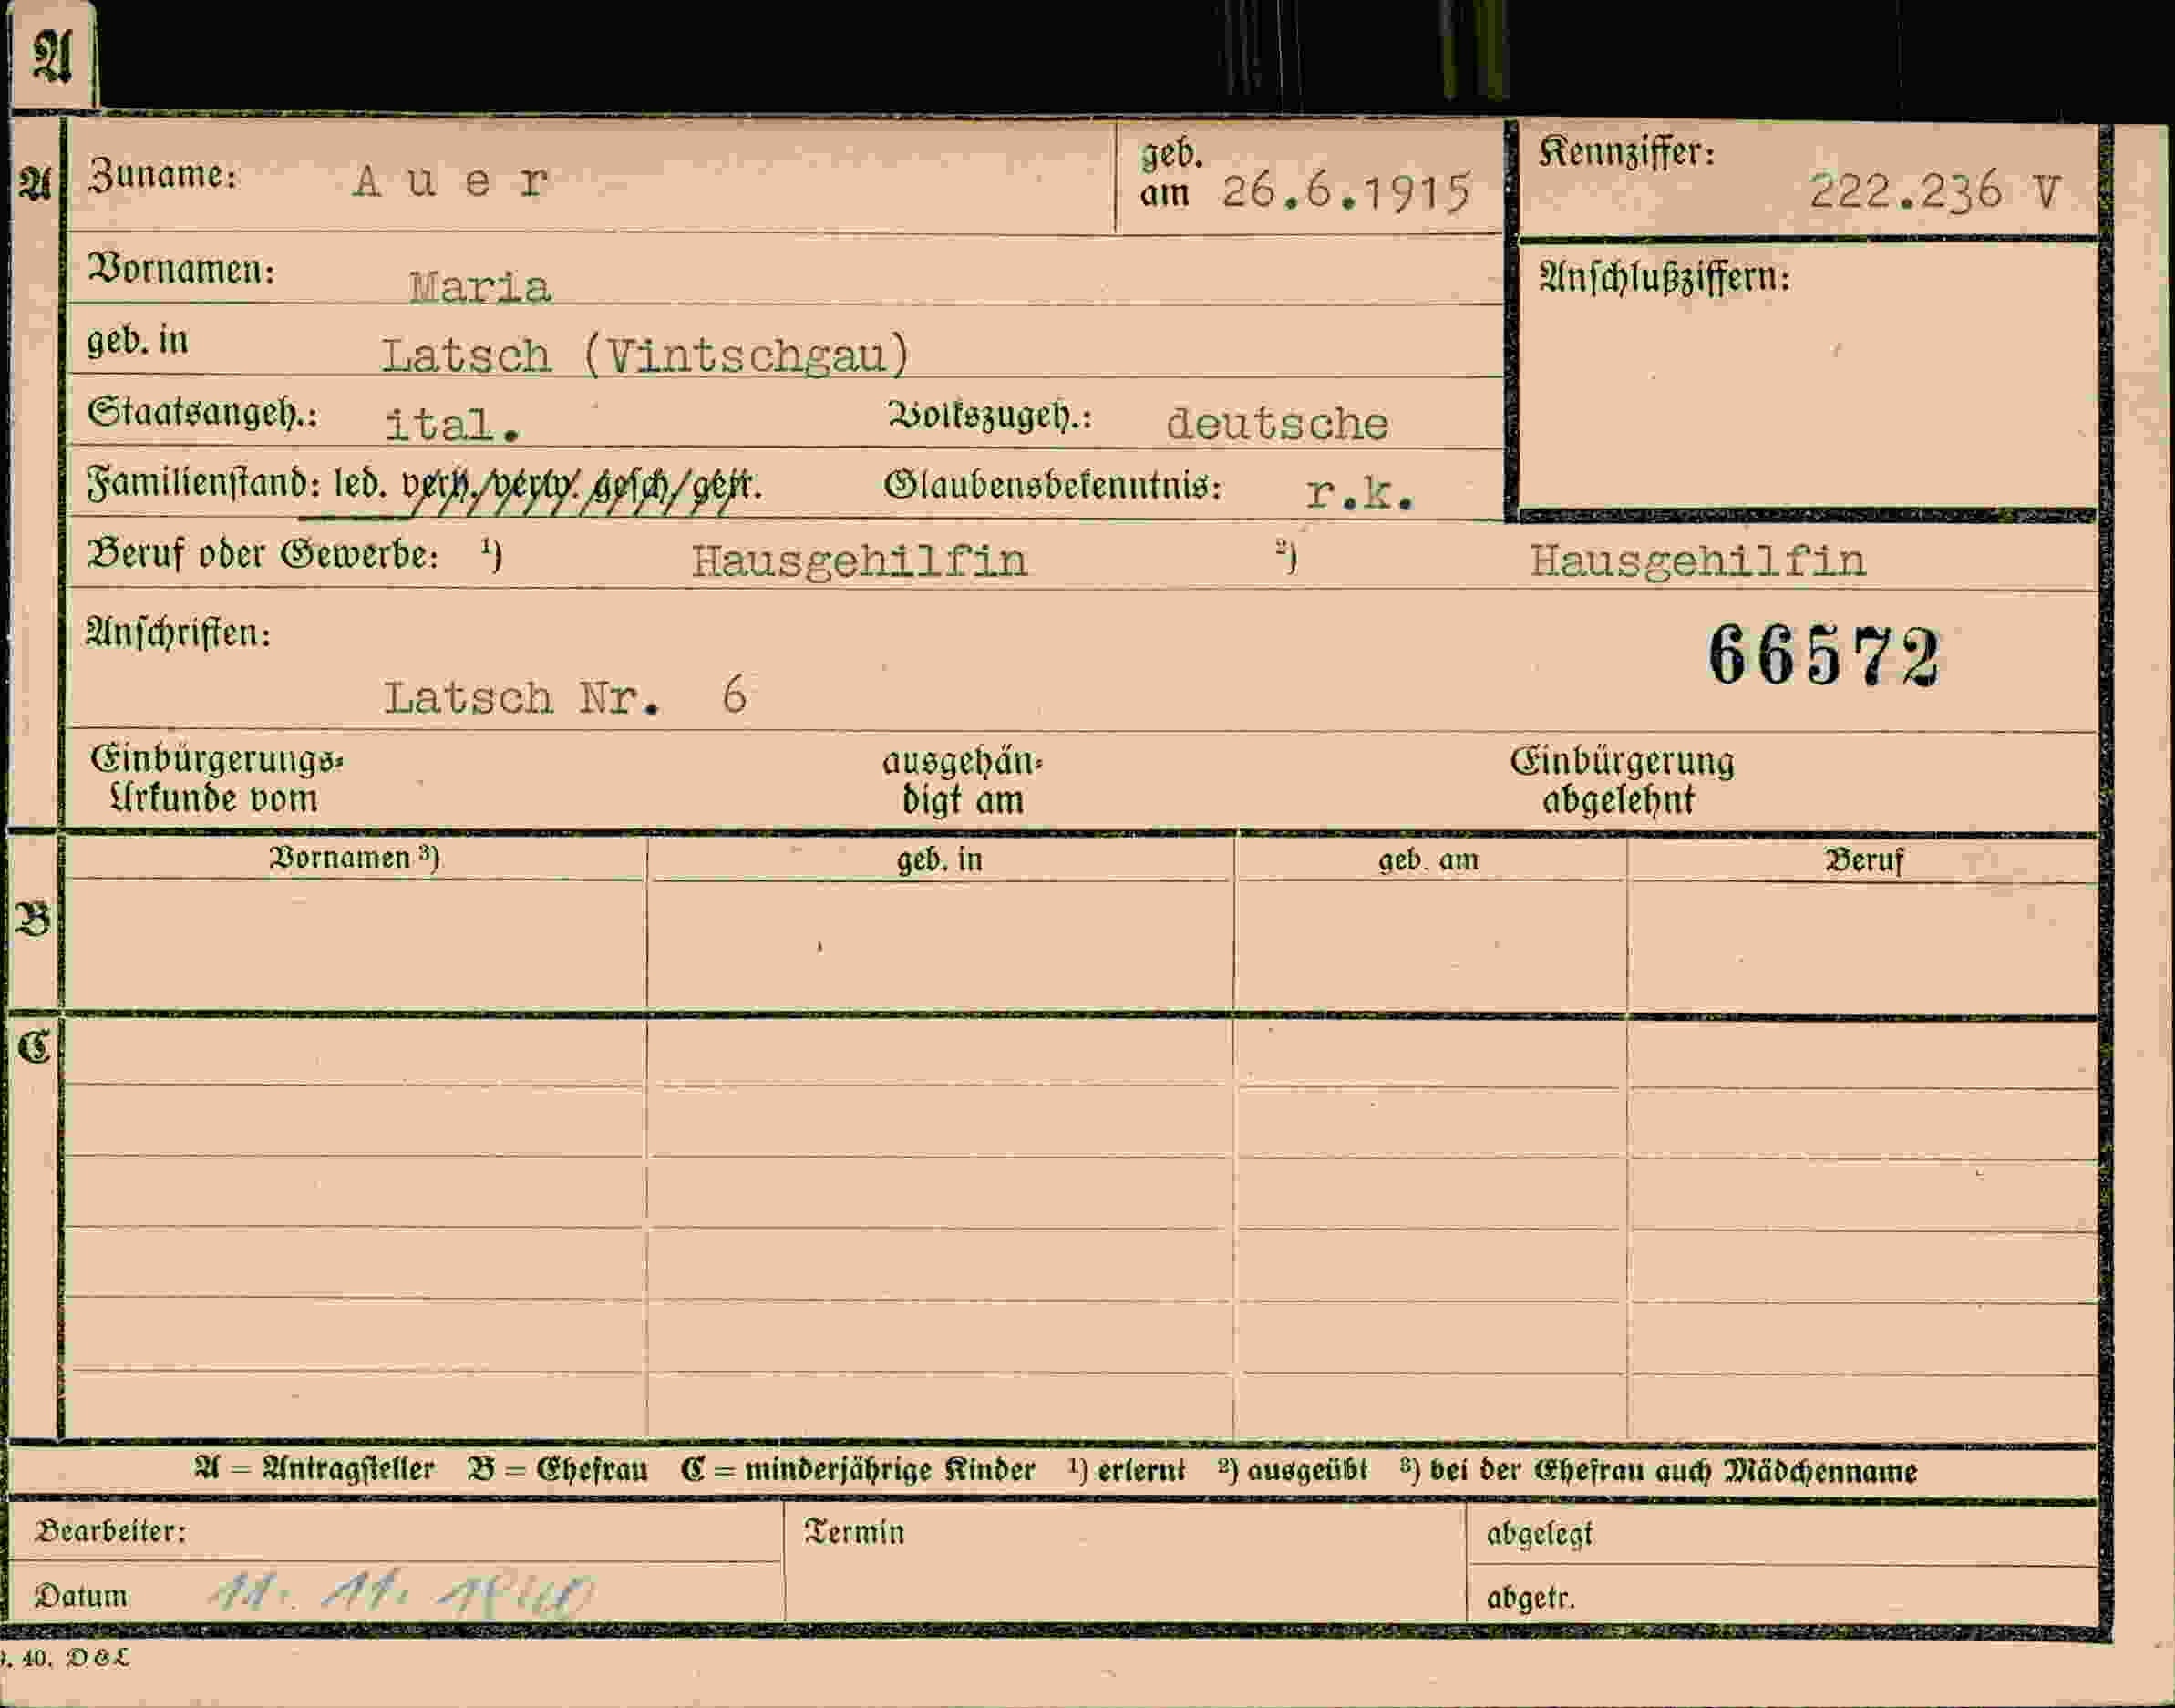 A
A Zuname: Auer geb. am 26.6.1915 Kennziffer: 222.236 V
Vornamen: Maria Anschlußziffern:
geb. in Latsch (Vintschgau)
Staatsangeh.: ital. Volkszugeh.: deutsche
Familienstand: led. verh./verw. gesch/getr. Glaubensbekenntnis: r.k.
Beruf oder Gewerbe: 1) Hausgehilfin 2) Hausgehilfin
Anschriften: 66572
Latsch Nr. 6
Einbürgerungs- ausgehän- Einbürgerung
Urkunde vom digt am abgelehnt
Vornamen 3) geb. in geb. am Beruf
B
C
A = Antragsteller B = Ehefrau C = minderjährige Kinder 1) erlernt 2) ausgeübt 3) bei der Ehefrau auch Mädchenname
Bearbeiter: Termin abgelegt
Datum 11. 11. 1940 abgetr.
40. D&L